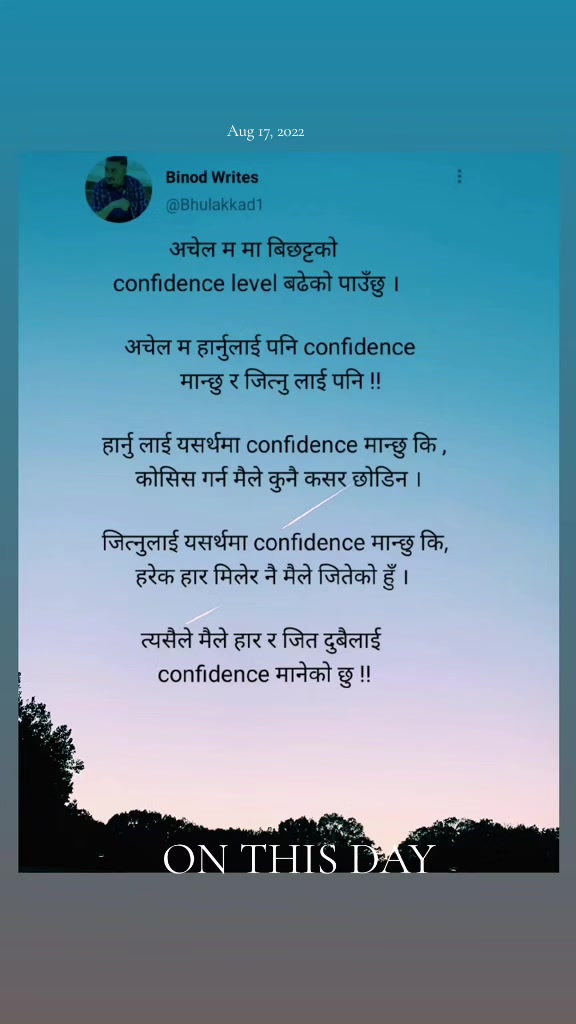 Aug 17, 2022
Binod Writes
@Bhulakkad1
अचेल म मा बिछट्टको
confidence level बढेको पाउँछु ।
अचेल म हार्नुलाई पनि confidence
मान्छु र जित्नु लाई पनि !!
हार्नु लाई यसर्थमा confidence मान्छु कि ,
कोसिस गर्न मैले कुनै कसर छोडिन ।
जित्नुलाई यसर्थमा confidence मान्छु कि,
हरेक हार मिलेर नै मैले जितेको हुँ ।
त्यसैले मैले हार र जित दुबैलाई
confidence मानेको छु !!
ON THIS DAY